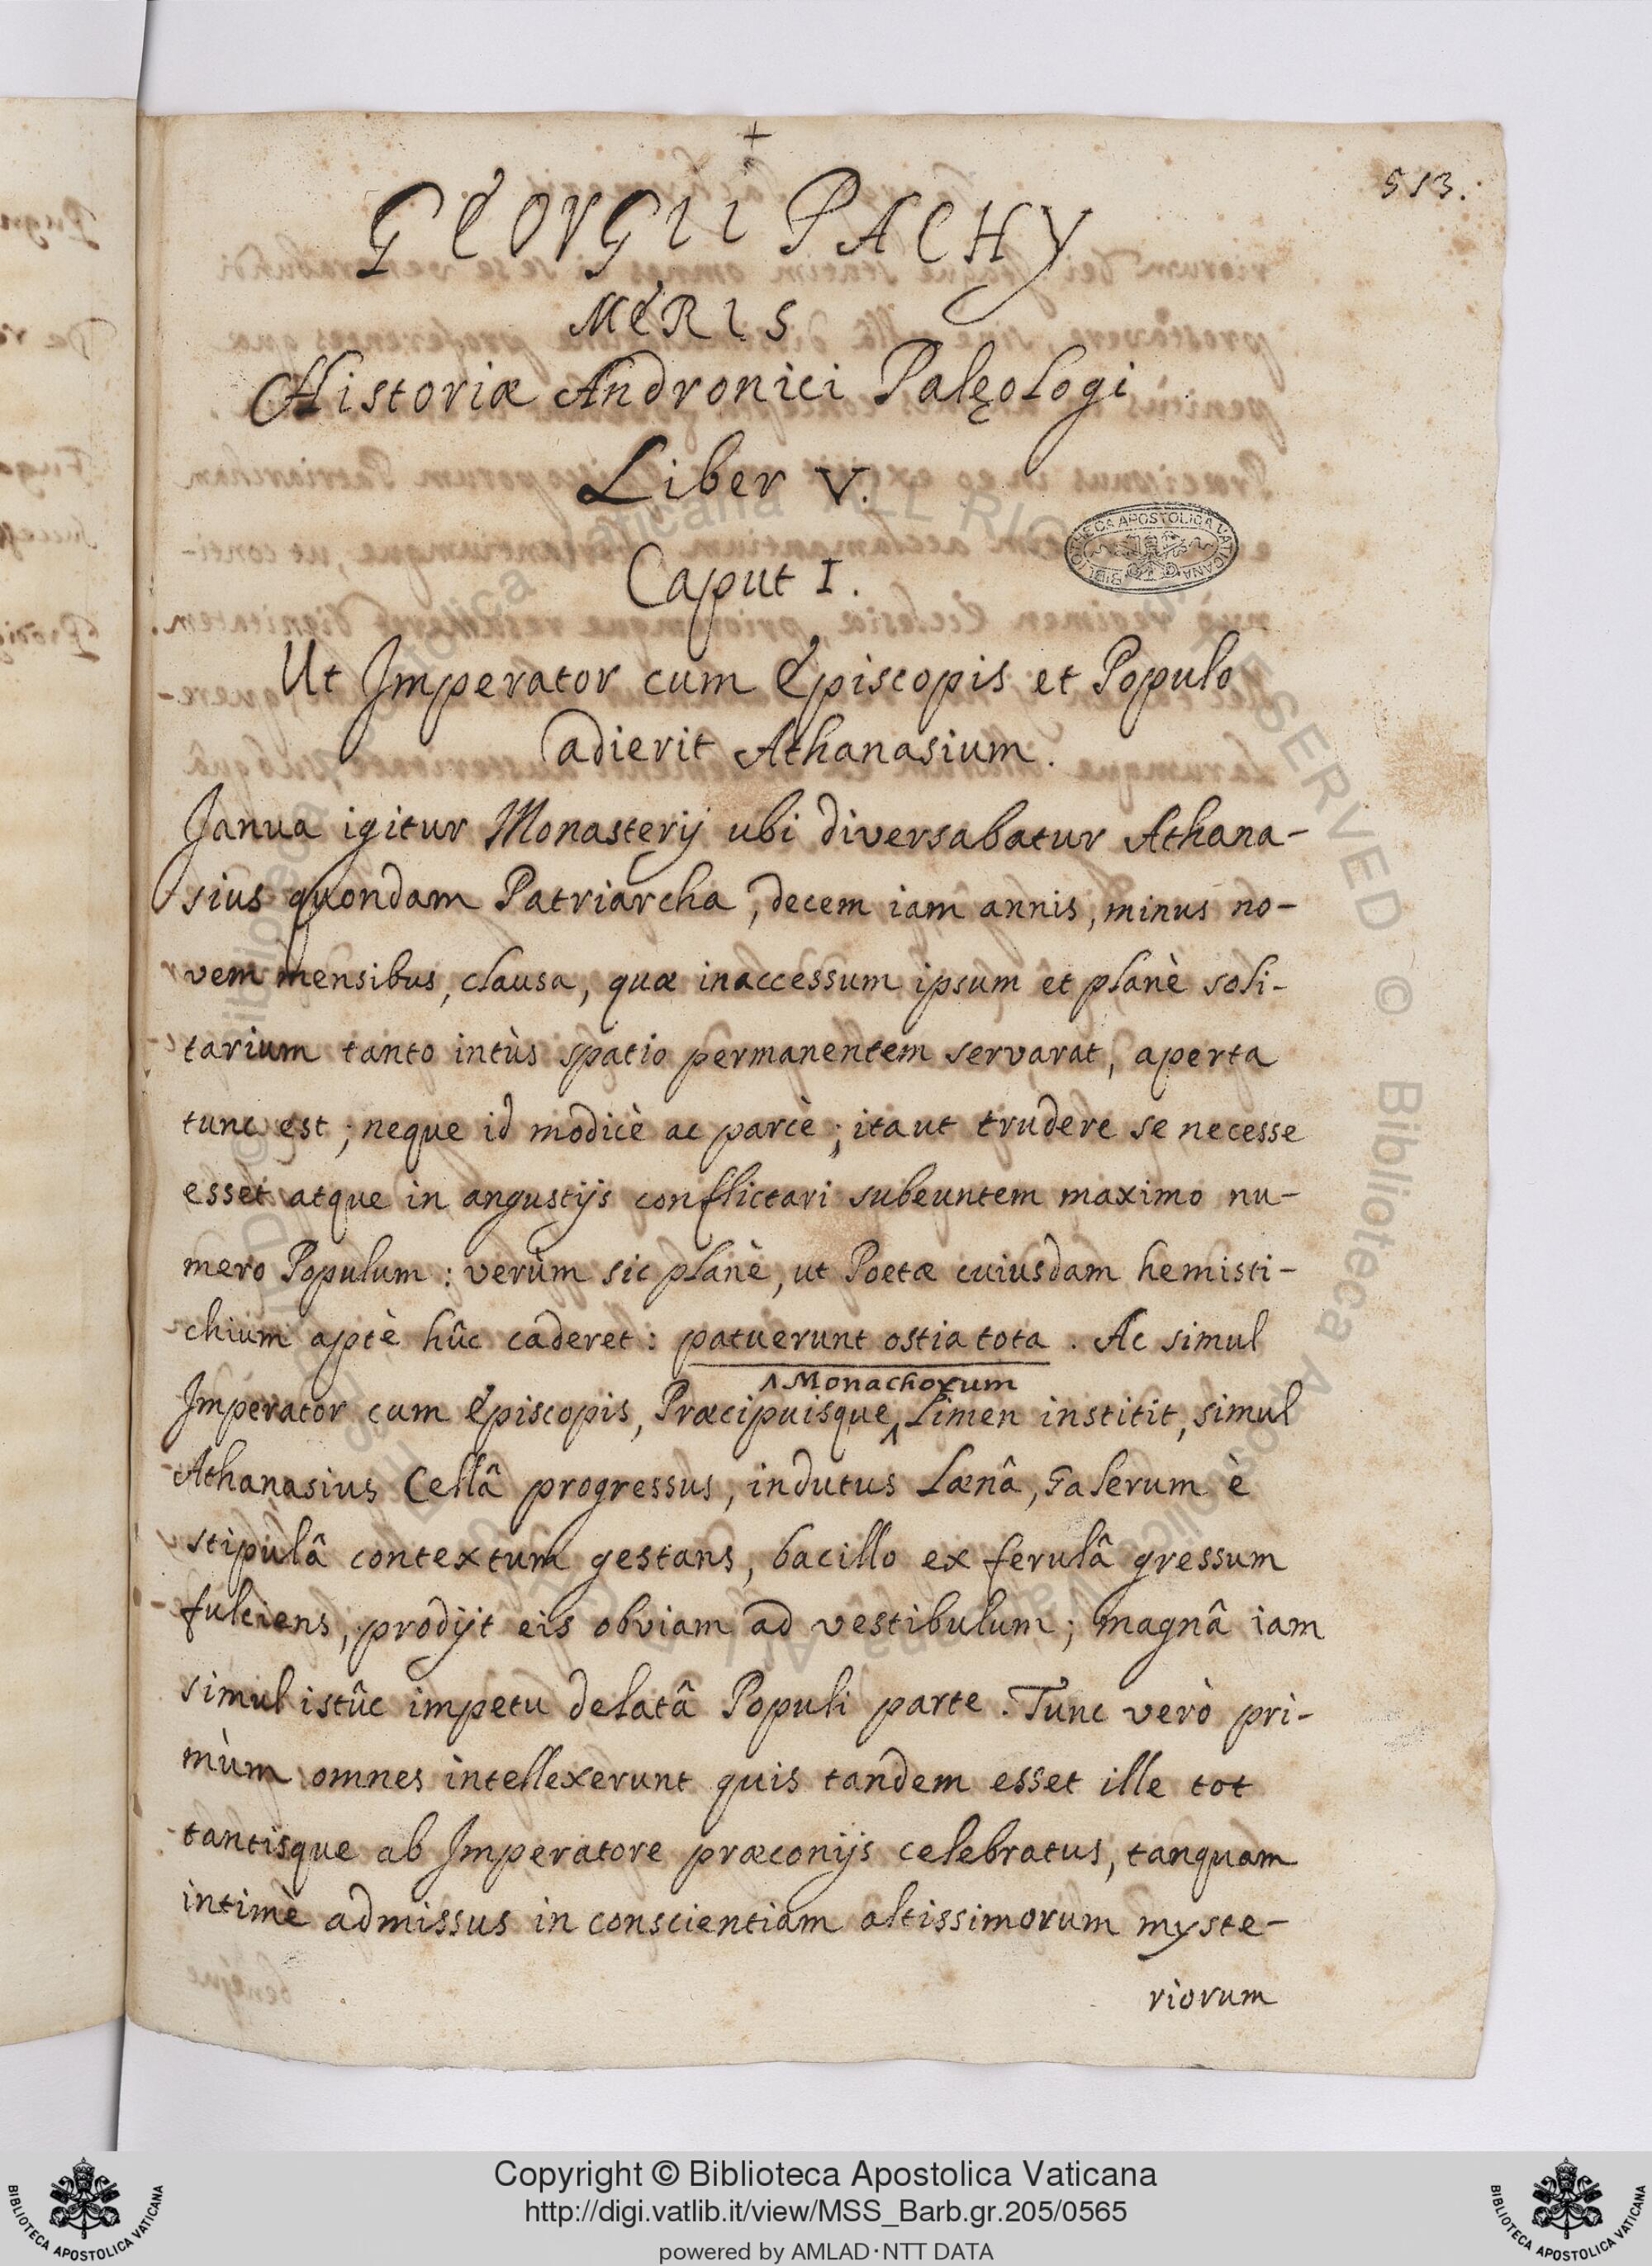 +
513.
GEORGII PACHY
MERIS
Historiæ Andronici Palęologi
Liber V.
Caput I.
Ut Imperator cum Episcopis et Populo
adierit Athanasium.
Janua igitur Monasterij ubi diversabatur Athana-
sius quondam Patriarcha, decem iam annis, minus no-
vem mensibus, clausa, quæ inaccessum ipsum et planè soli-
tarium tanto intùs spatio permanentem servarat, aperta
tunc est; neque id modicè ac parcè; itaut trudere se necesse
esset atque in angustijs conflictari subeuntem maximo nu-
mero Populum: verùm sic planè, ut Poetæ cuiusdam hemisti-
chium aptè hûc caderet: patuerunt ostia tota. Ac simul
^ Monachorum
Imperator cum Episcopis, Præcipuisque ^ Limen institit, simul
Athanasius Cellâ progressus, indutus Lænâ, Galerum è
stipulâ contextum gestans, bacillo ex ferulâ gressum
fulciens, prodijt eis obviam ad vestibulum; magnâ iam
simul istûc impetu delatâ Populi parte. Tunc verò pri-
mùm omnes intellexerunt quis tandem esset ille tot
tantisque ab Imperatore præconijs celebratus, tanquam
intimè admissus in conscientiam altissimorum myste-
riorum
Copyright © Biblioteca Apostolica Vaticana
http://digi.vatlib.it/view/MSS_Barb.gr.205/0565
powered by AMLAD·NTT DATA
BIBLIOTECA APOSTOLICA VATICANA
BIBLIOTECA APOSTOLICA VATICANA